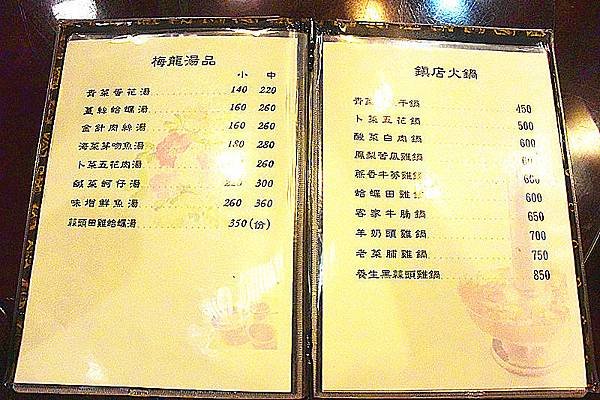 梅龍湯品
小 中
青菜蛋花湯 140 220
薑絲蛤蠣湯 160 260
金針肉絲湯 160 260
海菜芽吻魚湯 180 280
卜菜五花肉湯 260
鹹菜蚵仔湯 300
味增鮮魚湯 260 360
蒜頭田雞蛤蠣湯 350(份)
鎮店火鍋
青菜 干鍋 450
卜菜五花鍋 500
酸菜白肉鍋 600
鳳梨苦瓜雞鍋
香牛蒡雞鍋
蛤蠣田雞鍋 600
客家牛腩鍋 650
羊奶頭雞鍋 700
老菜脯雞鍋 750
養生黑蒜頭雞鍋 850